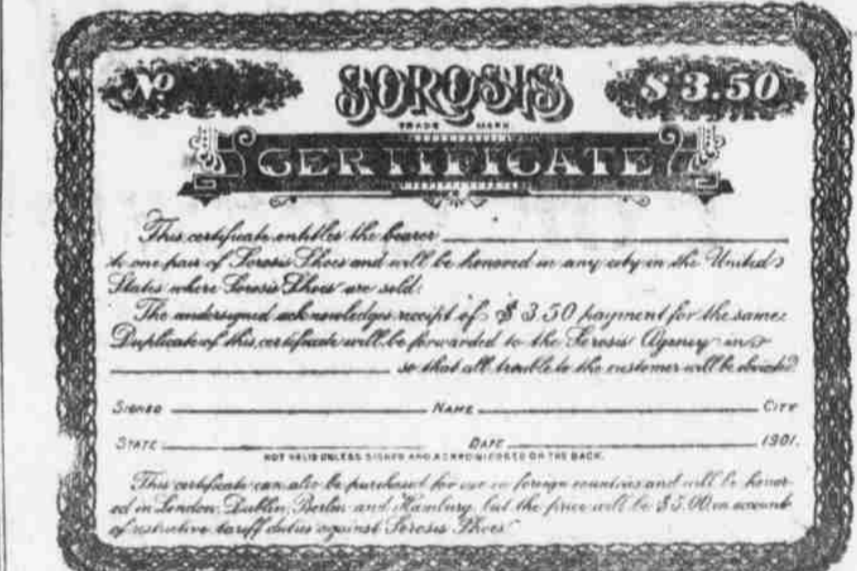 No SOROSIS $3.50
TRADE MARK
CERTIFICATE
This certificate entitles the bearer
to one pair of Sorosis Shoes and will be honored in any city in the United
States where Sorosis Shoes are sold.
The undersigned acknowledges receipt of $3.50 payment for the same.
Duplicate of this certificate will be forwarded to the Sorosis Agency in
so that all trouble to the customer will be obviated
SIGNED NAME CITY
STATE DATE 1901.
NOT VALID UNLESS SIGNED AND ACKNOWLEDGED ON THE BACK.
This certificate can also be purchased for use in foreign countries and will be honor-
ed in London, Dublin, Berlin and Hamburg, but the price will be $5.00 on account
of restrictive tariff duties against Sorosis Shoes